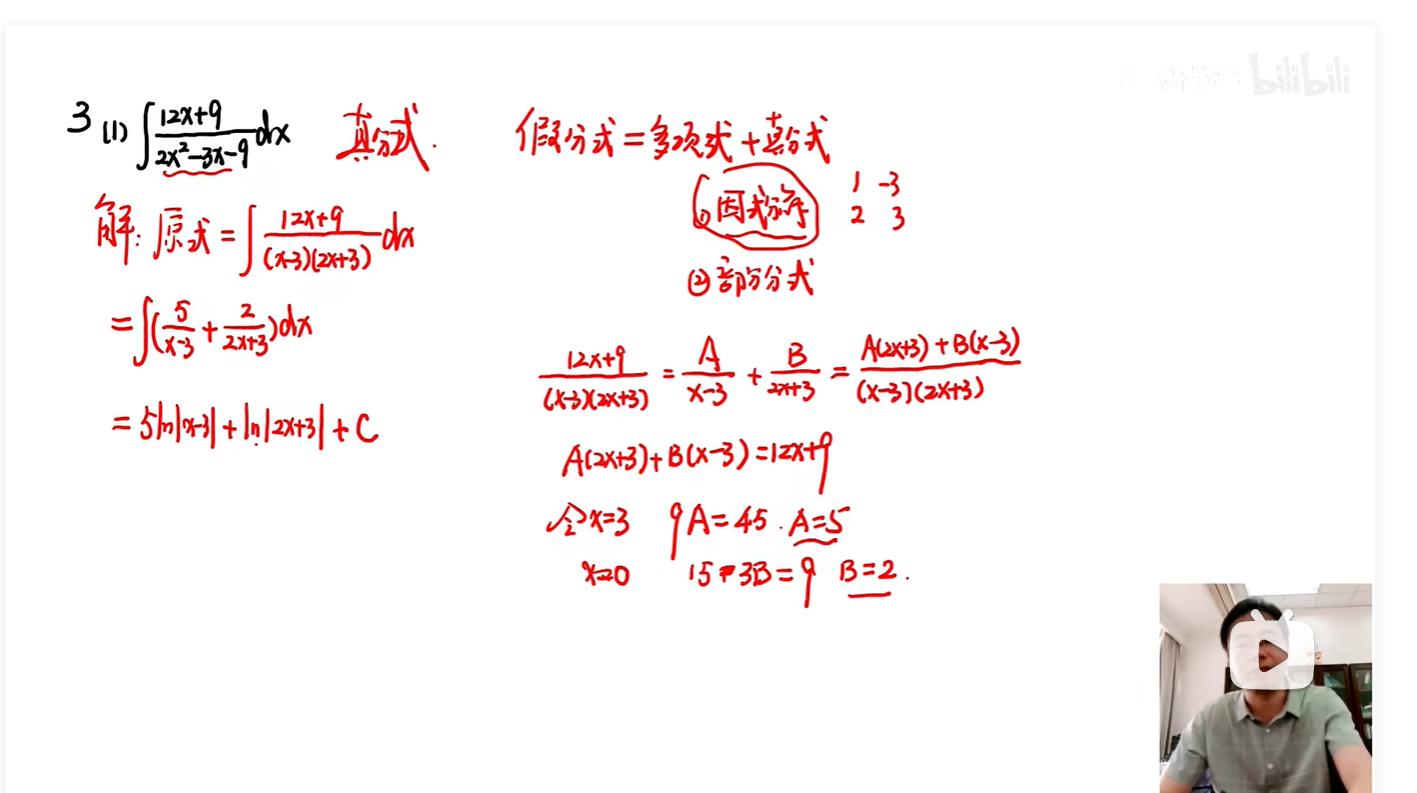 bilibili
3 (1) ∫ (12x+9)/(2x²-3x-9) dx 真分式.
解: 原式 = ∫ (12x+9)/((x-3)(2x+3)) dx
= ∫ (5/(x-3) + 2/(2x+3)) dx
= 5ln|x-3| + ln|2x+3| + C
假分式 = 多项式 + 真分式
① 因式分解
1 -3
2 3
② 部分分式
(12x+9)/((x-3)(2x+3)) = A/(x-3) + B/(2x+3) = (A(2x+3) + B(x-3))/((x-3)(2x+3))
A(2x+3) + B(x-3) = 12x+9
令x=3 9A=45. A=5
x=0 15-3B=9 B=2.